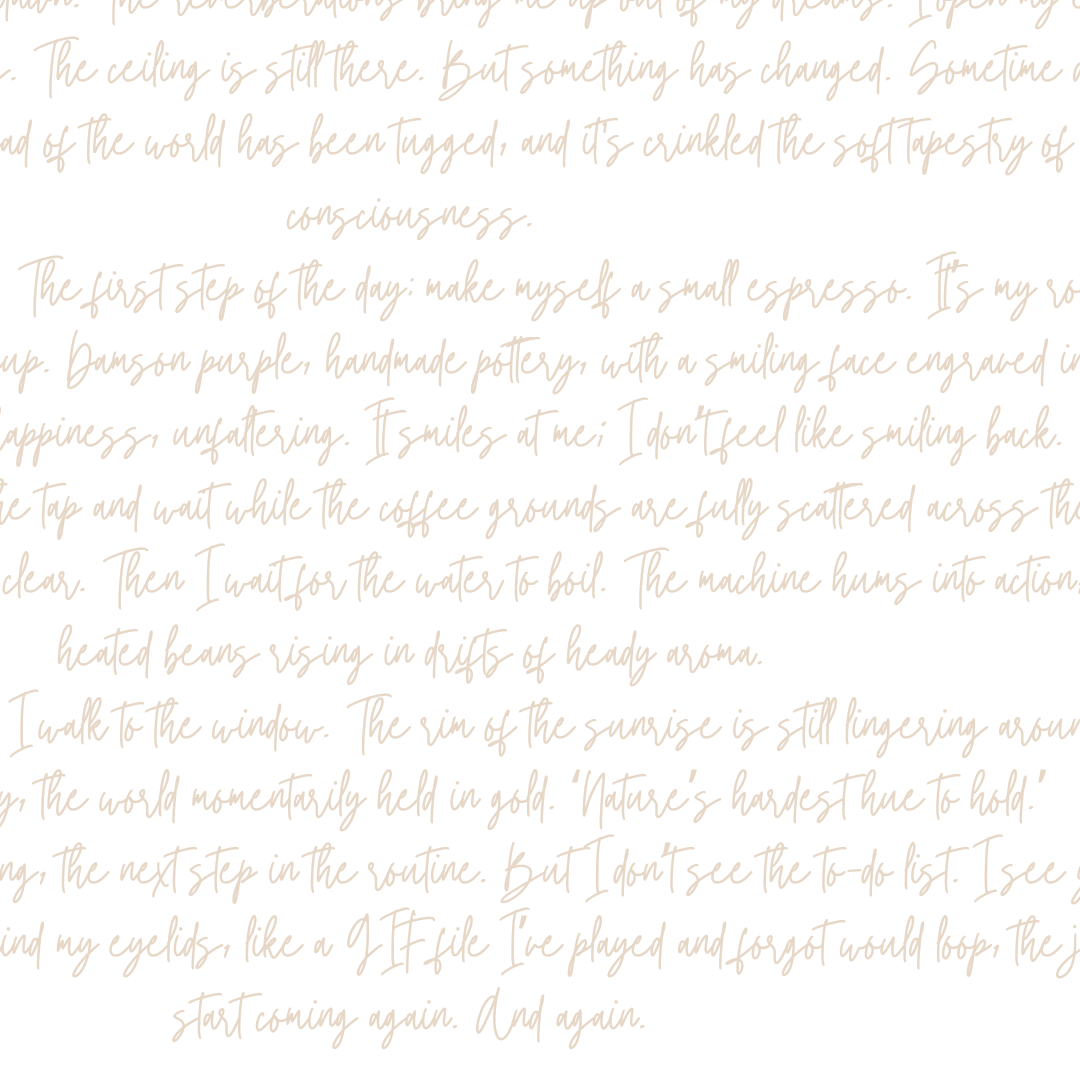 The reverberations bring me up out of my dreams. I open my
The ceiling is still there. But something has changed. Sometime
of the world has been tugged, and it's crinkled the soft tapestry of
consciousness.
The first step of the day: make myself a small espresso. It's my
Damson purple, handmade pottery, with a smiling face engraved in
happiness, unfaltering. It smiles at me; I don't feel like smiling back.
tap and wait while the coffee grounds are fully scattered across the
clear. Then I wait for the water to boil. The machine hums into action,
heated beans rising in drifts of heady aroma.
I walk to the window. The rim of the sunrise is still lingering
the world momentarily held in gold. "Nature's hardest hue to hold."
the next step in the routine. But I don't see the to-do list. I see
my eyelids, like a GIF file I've played and forgot would loop, the
start coming again. And again.